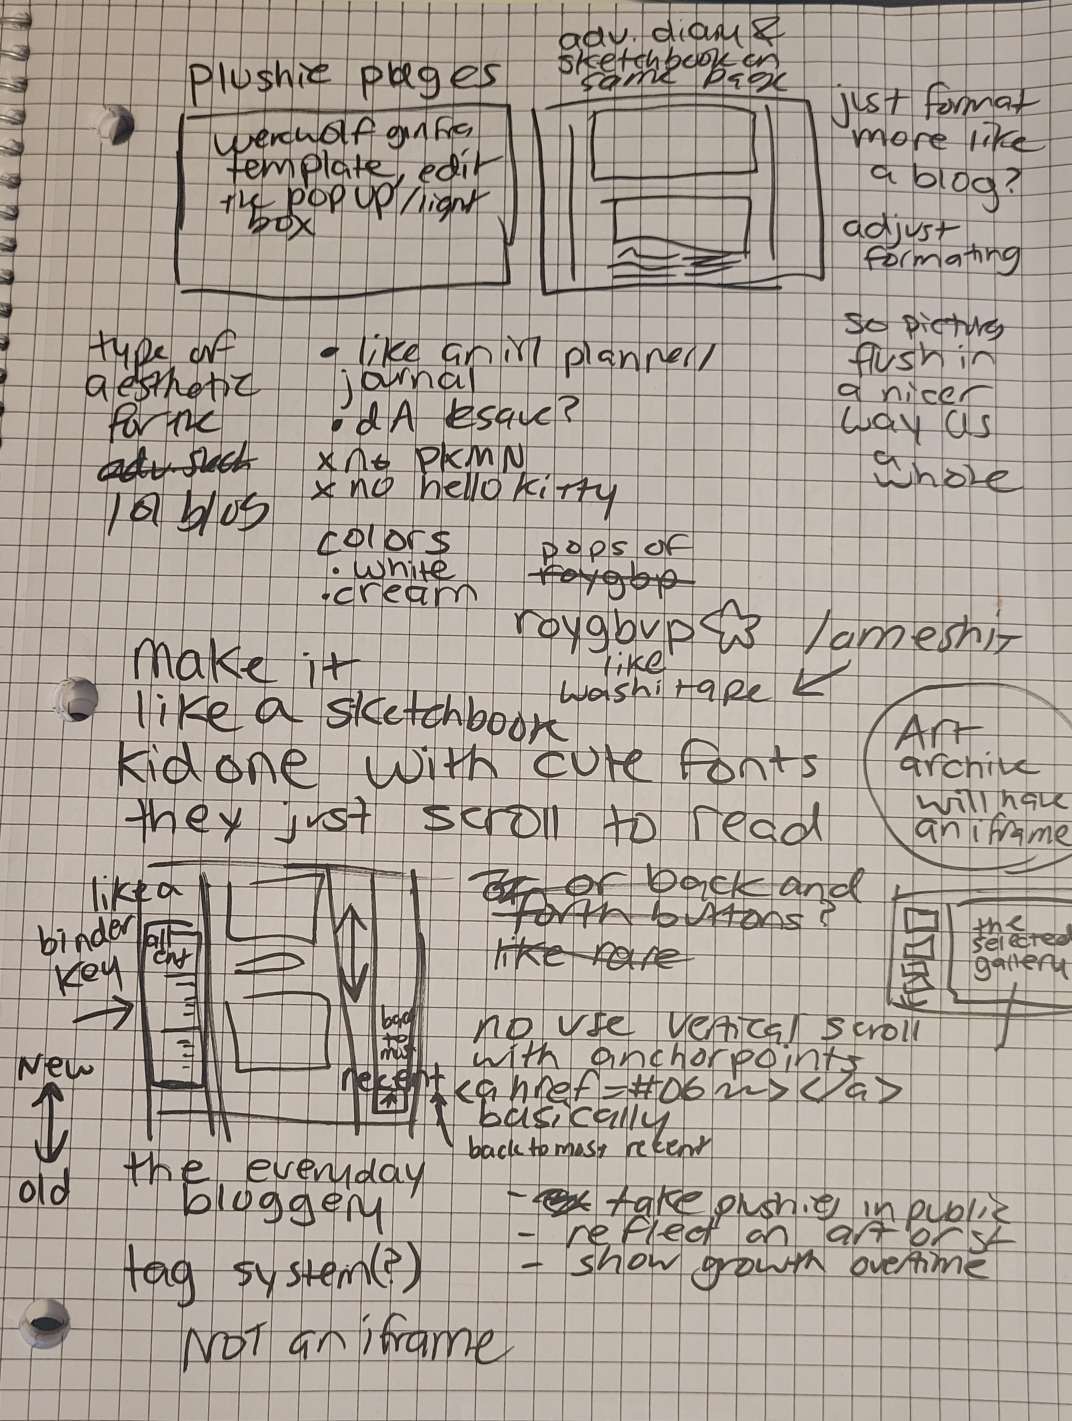 plushie pages
werewolf
template, edit
the pop up/light
box
adv. diary &
sketchbook on
same page
just format
more like
a blog?
adjust
formating
so pictures
flush in
a nicer
way as
a
whole
type of
aesthetic
for the
adv. sket
blog
• like an irl planner/
journal
• dA
x no PKMN
x no hello kitty
colors
• white
• cream
pops of
roygbp
roygbvp
like
washi tape
/ameshit
make it
like a sketchbook
kid one with cute fonts
they just scroll to read
Art
archive
will have
an iframe
the
selected
gallery
like a
binder
key
all
ent
back
to
most
recent
New
old
or back and
forth buttons?
like rare
no use vertical scroll
with anchorpoints
<a href=#06 ~~> </a>
basically
back to most recent
the everyday
bloggery
tag system(?)
NOT an iframe
- take plushies in public
- reflect on art or st
- show growth overtime